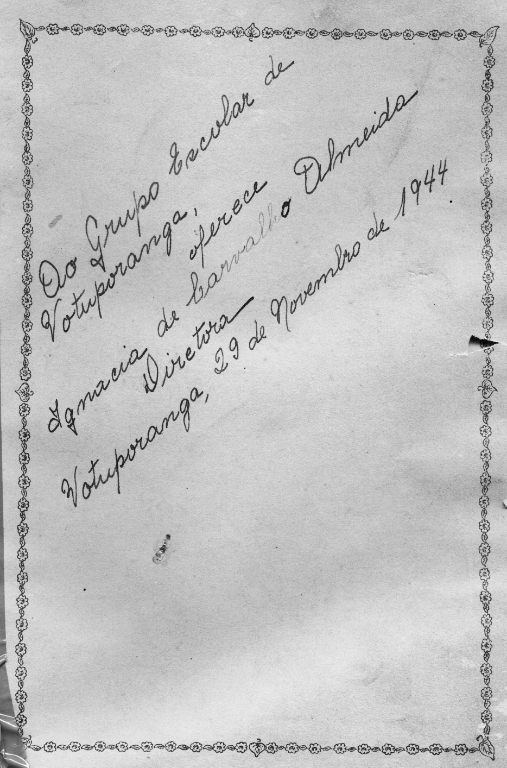 Ao Grupo Escolar de
Votuporanga,
oferece
Ignacia de Carvalho Almeida
Diretora
Votuporanga, 29 de Novembro de 1944